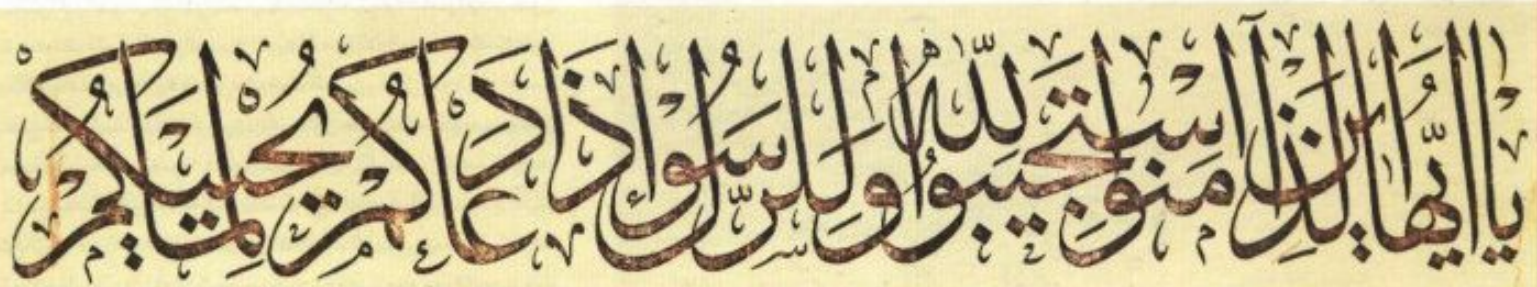 يَا أَيُّهَا الَّذِينَ آمَنُوا اسْتَجِيبُوا لِلَّهِ وَلِلرَّسُولِ إِذَا دَعَاكُمْ لِمَا يُحْيِيكُمْ